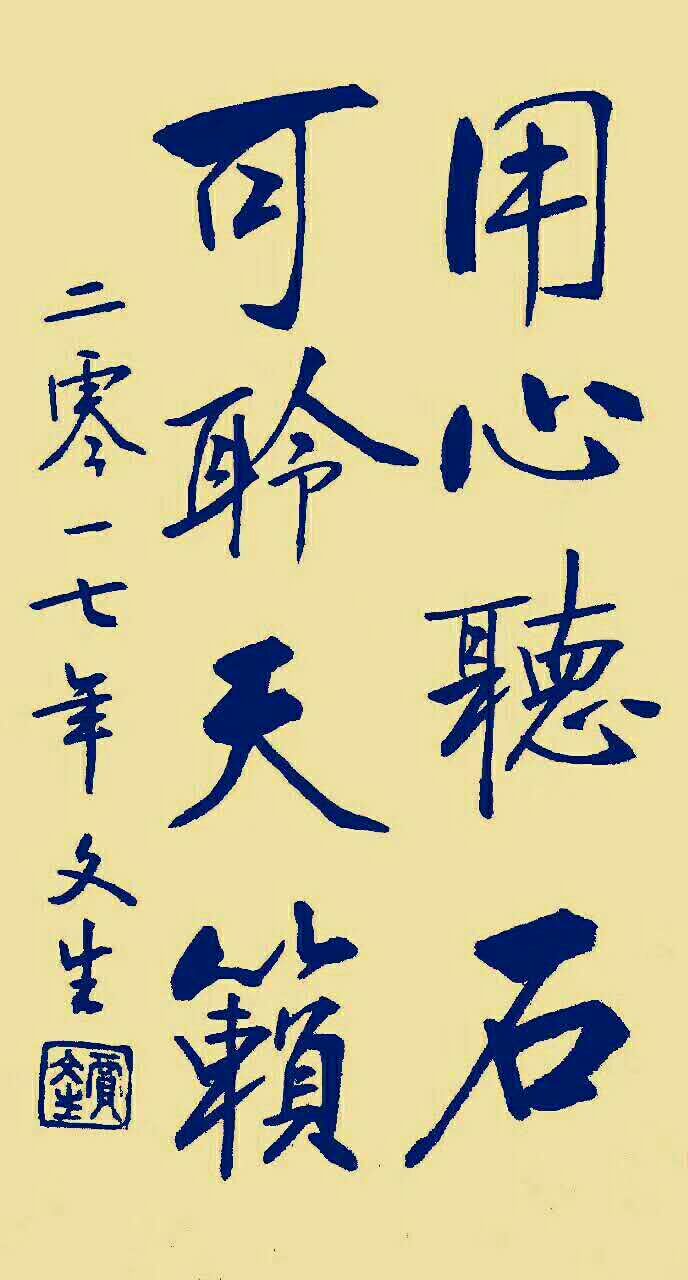 用心聽石
可聆天籟
二零一七年文生